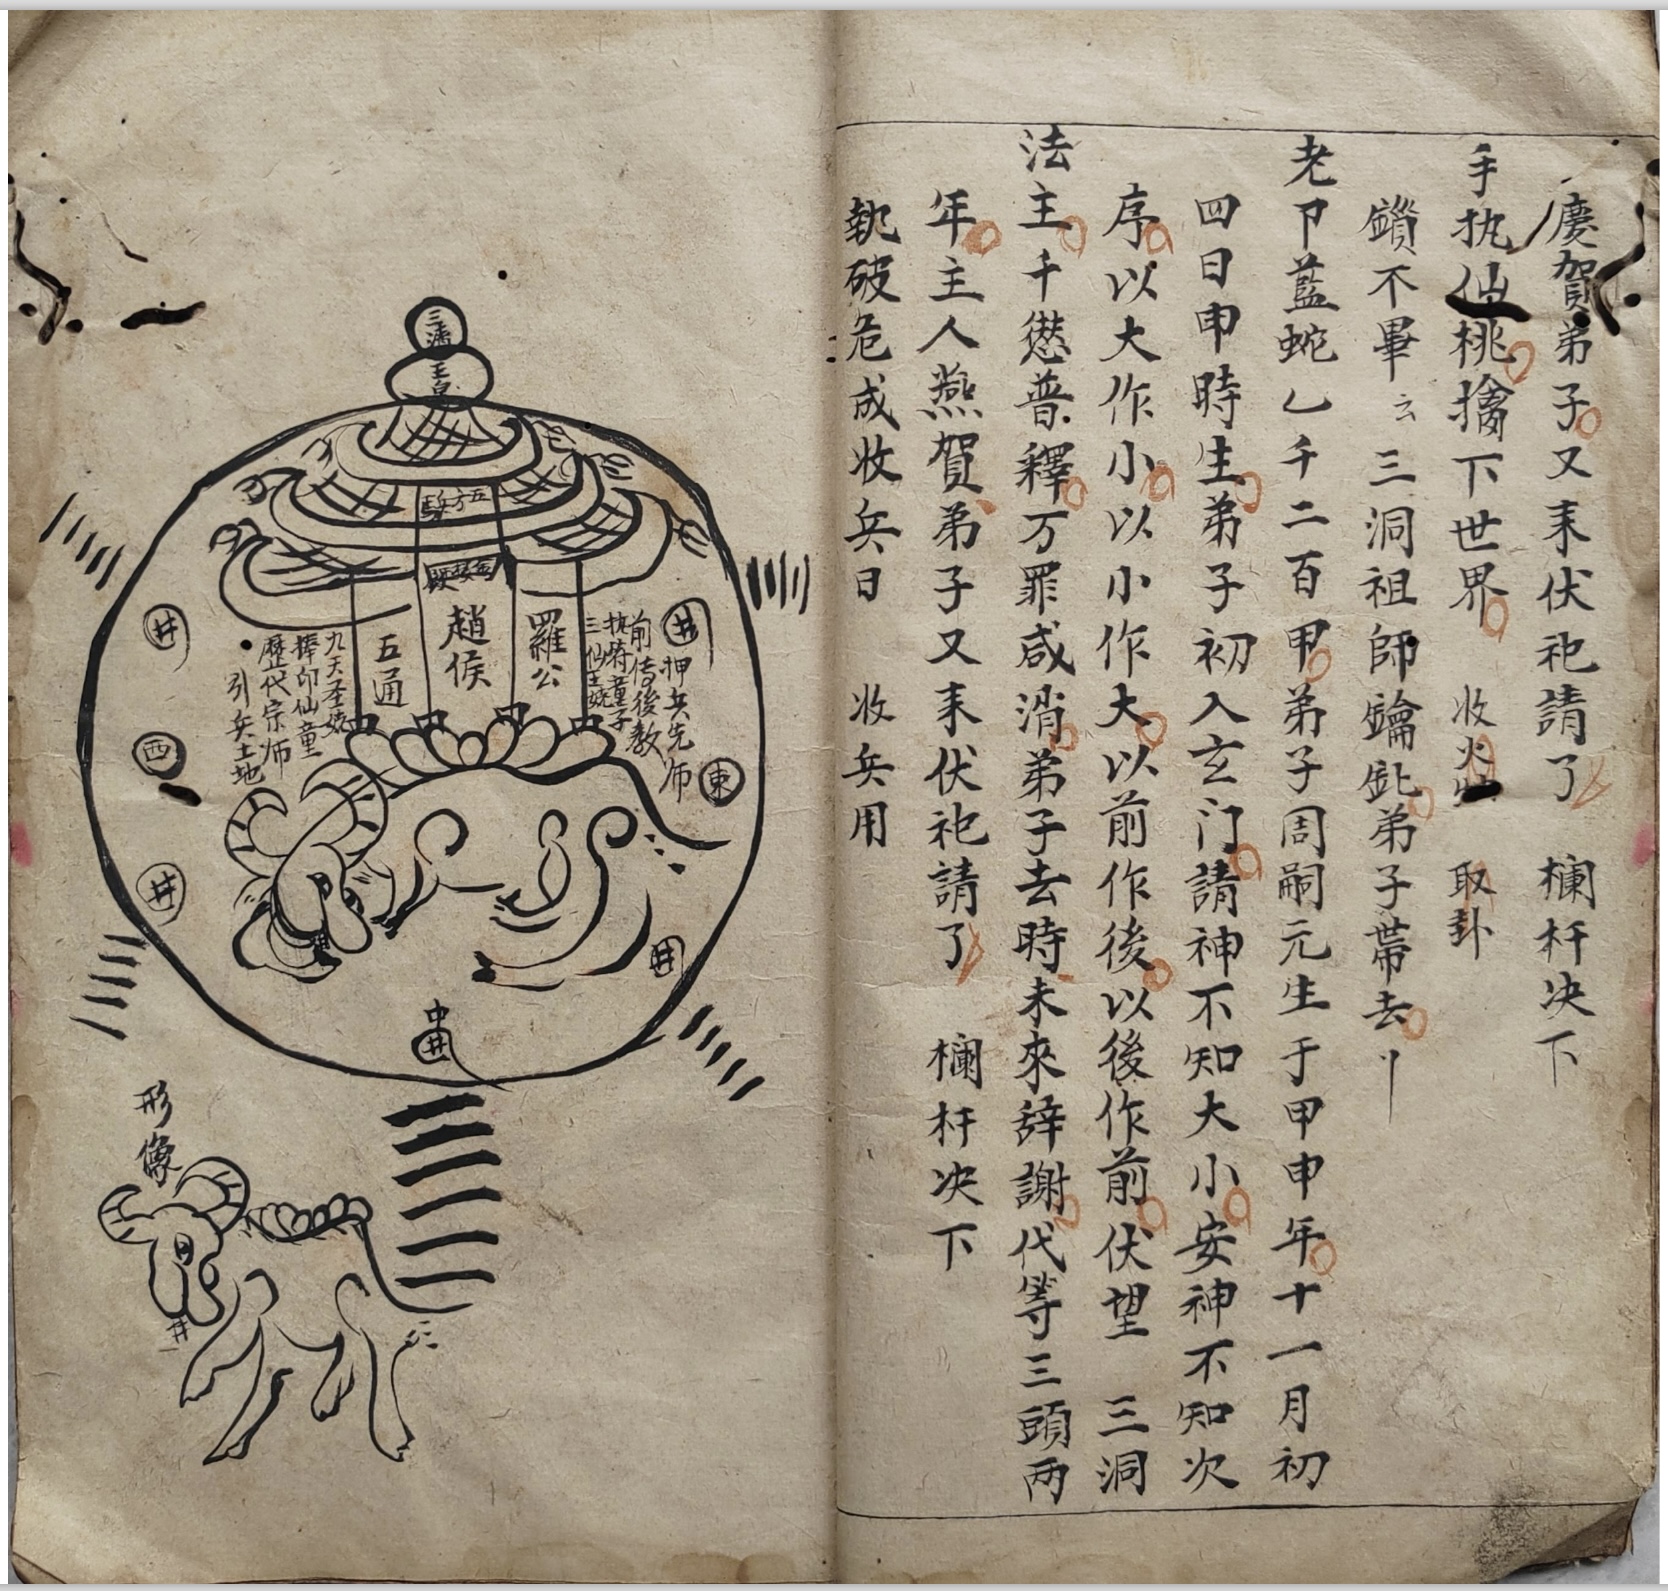 慶賀弟子又来伏祀請了 欄杆决下
手执仙桃擒下世界 收火 取卦
鎖不畢云三洞祖師鑰匙弟子帶去
老卩藍蛇乙千二百甲弟子周嗣元生于甲申年十一月初
四日申時生弟子初入玄门請神不知大小安神不知次
序以大作小以小作大以前作後以後作前伏望 三洞
法主千愆普釋万罪咸消弟子去時未來辞謝代等三頭两
年主人燕賀弟子又来伏祀請了 欄杆决下
執破危成收兵日 收兵用
三清
玉皇
五方兵
趙侯
羅公
五通
井
押兵先师
前传後教
执符童子
三仙王姥
九天圣姥
捧印仙童
歷代宗师
引兵土地
井
西
東
井
井
中井
形像
井